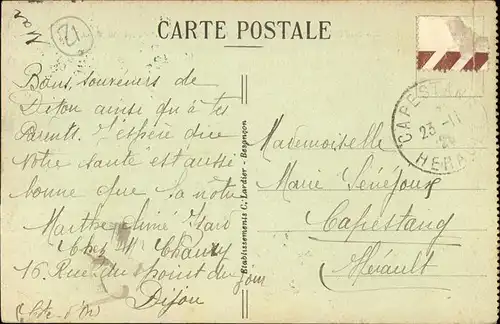 CARTE POSTALE
12
Bons souvenirs de
Dijon ainsi qu'à tes
Parents. J'espère que
votre santé est aussi
bonne que la notre
Marthe
Chez M
16 Rue du point du jour
Dijon
(Côte-d'Or)
Etablissements C. Lardier - Besançon
Mademoiselle
Marie Sénéjoux
Capestang
Hérault
CAPESTAN
23 - 11
HERAU